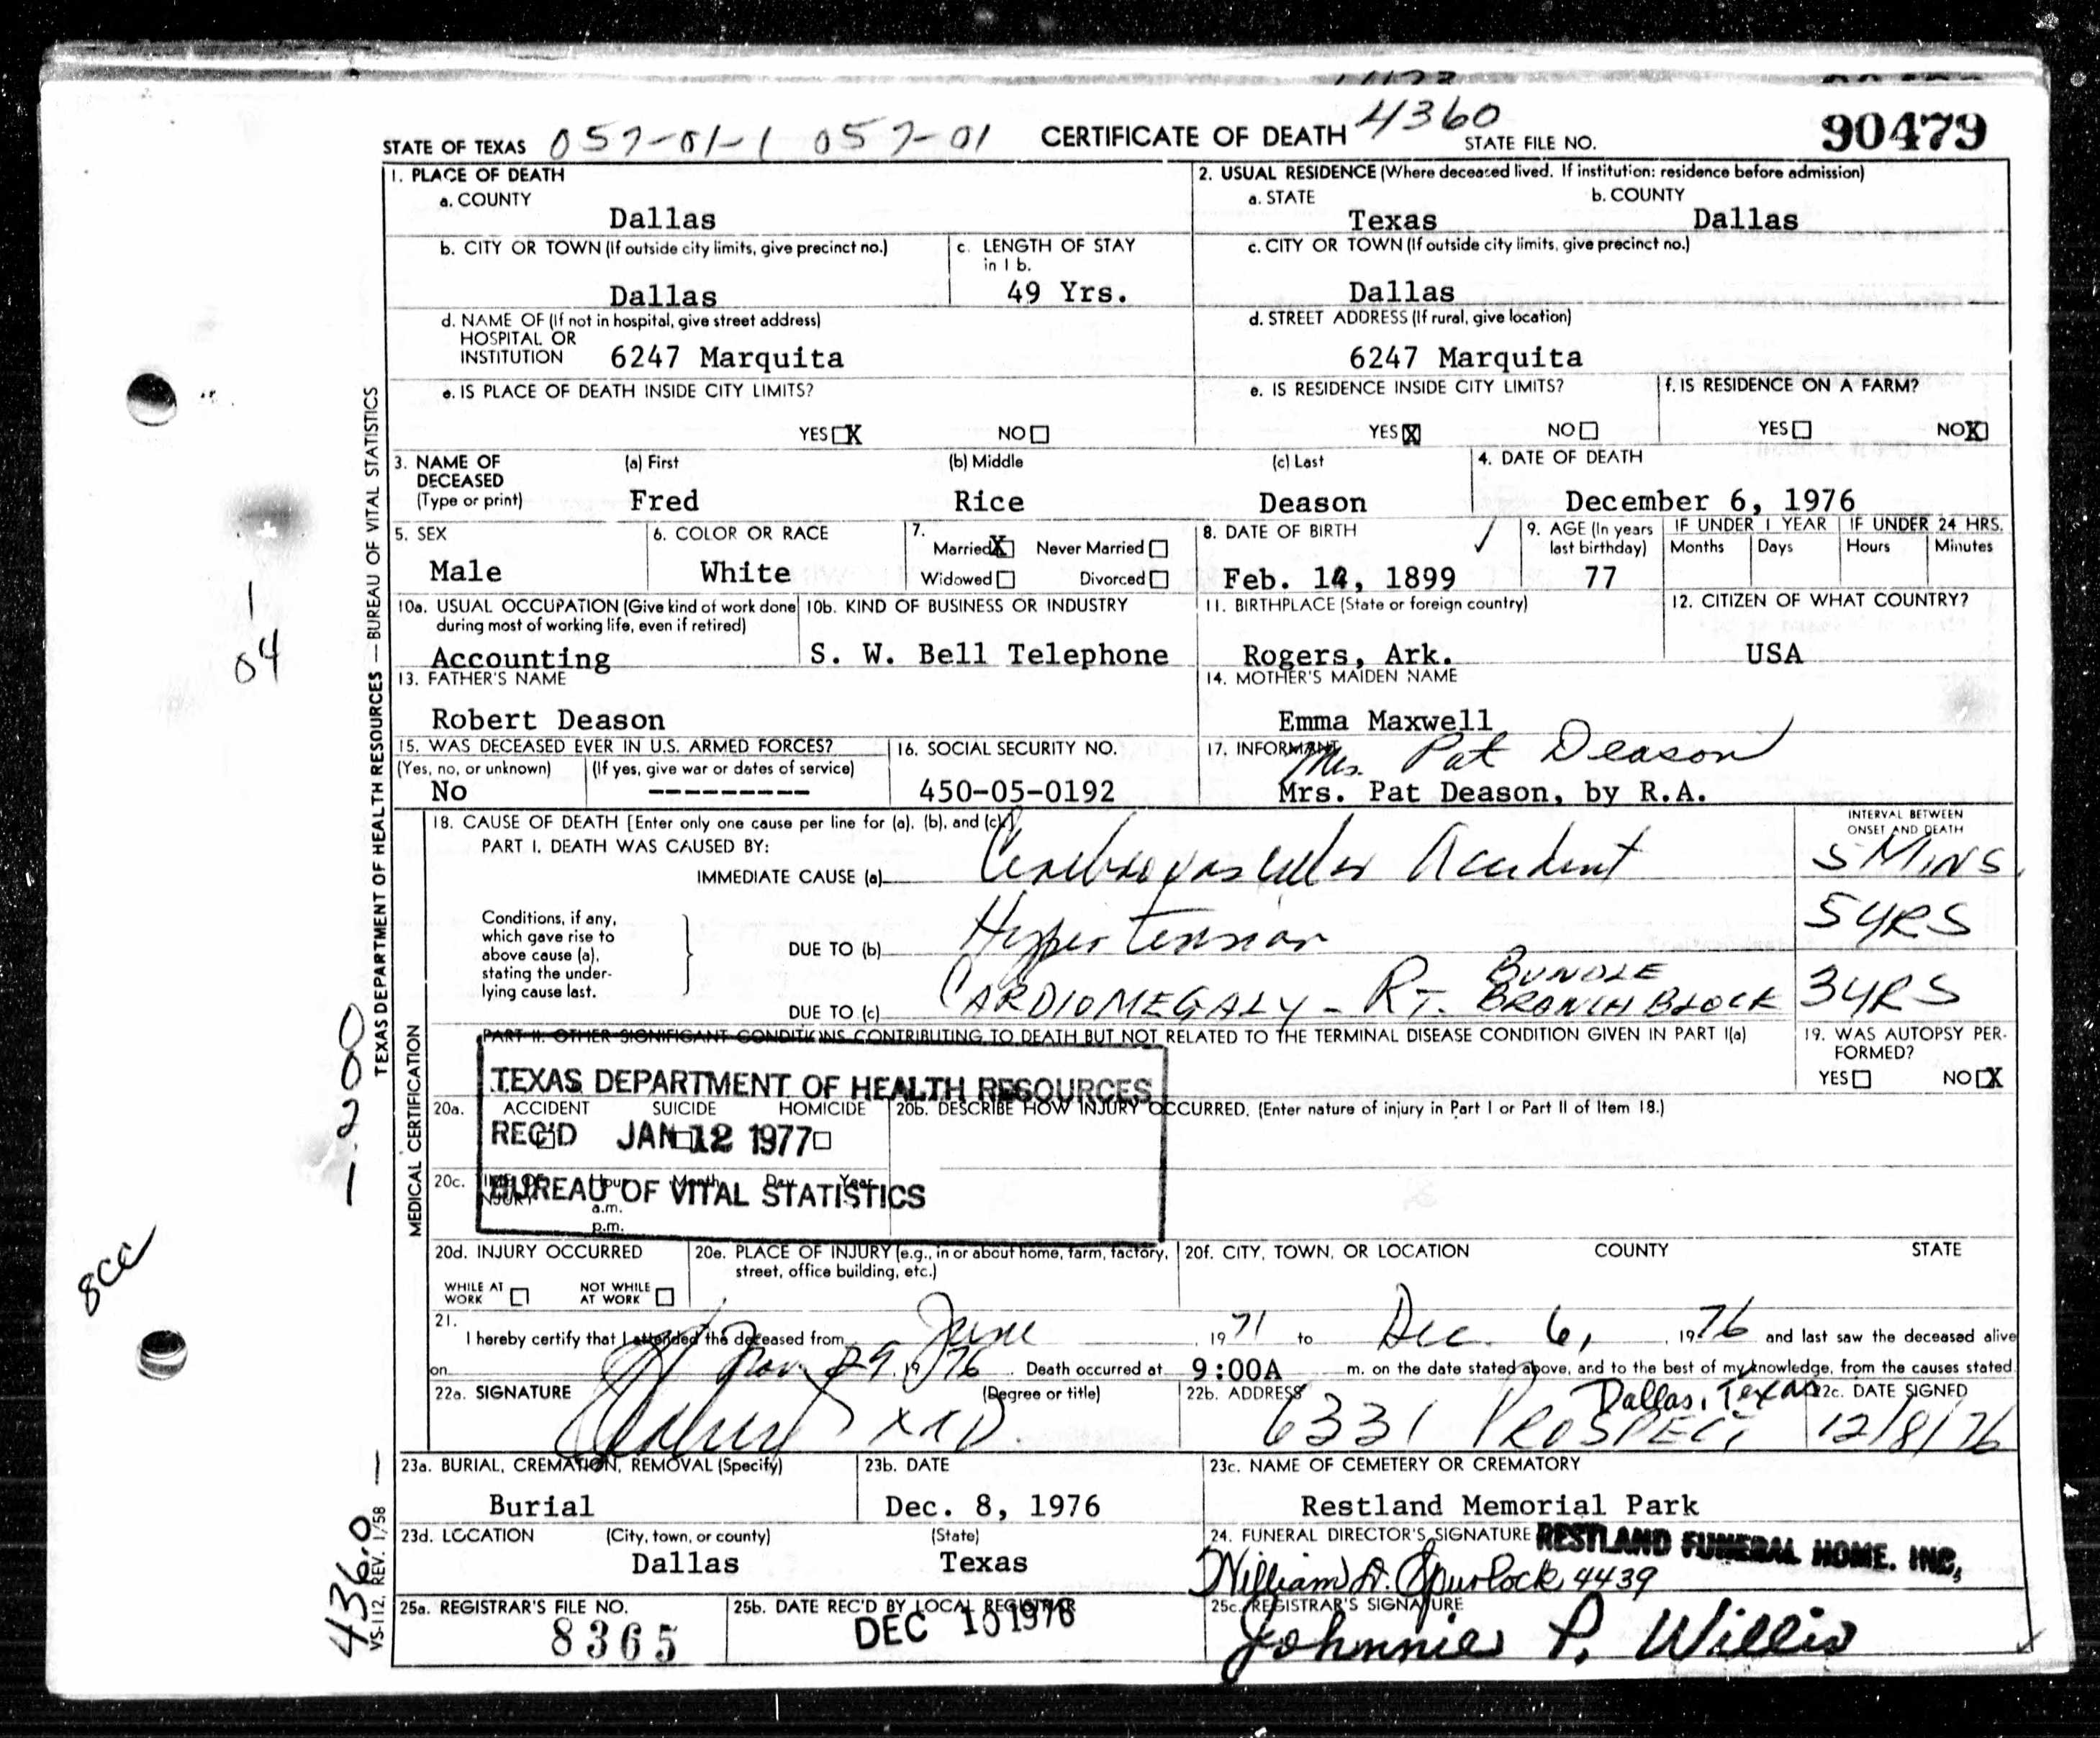 STATE OF TEXAS 057-01-1 057-01 CERTIFICATE OF DEATH 4360 STATE FILE NO. 90479
1. PLACE OF DEATH
a. COUNTY
Dallas
2. USUAL RESIDENCE (Where deceased lived. If institution: residence before admission)
a. STATE b. COUNTY
Texas Dallas
b. CITY OR TOWN (If outside city limits, give precinct no.)
Dallas
c. LENGTH OF STAY
in 1 b.
49 Yrs.
c. CITY OR TOWN (If outside city limits, give precinct no.)
Dallas
d. NAME OF (If not in hospital, give street address)
HOSPITAL OR
INSTITUTION 6247 Marquita
d. STREET ADDRESS (If rural, give location)
6247 Marquita
e. IS PLACE OF DEATH INSIDE CITY LIMITS?
YES X NO
e. IS RESIDENCE INSIDE CITY LIMITS?
YES X NO
f. IS RESIDENCE ON A FARM?
YES NO X
3. NAME OF
DECEASED
(Type or print)
(a) First (b) Middle (c) Last
Fred Rice Deason
4. DATE OF DEATH
December 6, 1976
5. SEX
Male
6. COLOR OR RACE
White
7.
Married X Never Married
Widowed Divorced
8. DATE OF BIRTH
Feb. 14, 1899
9. AGE (In years
last birthday)
77
IF UNDER 1 YEAR IF UNDER 24 HRS.
Months Days Hours Minutes
10a. USUAL OCCUPATION (Give kind of work done
during most of working life, even if retired)
Accounting
10b. KIND OF BUSINESS OR INDUSTRY
S. W. Bell Telephone
11. BIRTHPLACE (State or foreign country)
Rogers, Ark.
12. CITIZEN OF WHAT COUNTRY?
USA
13. FATHER'S NAME
Robert Deason
14. MOTHER'S MAIDEN NAME
Emma Maxwell
15. WAS DECEASED EVER IN U.S. ARMED FORCES?
(Yes, no, or unknown) (If yes, give war or dates of service)
No ---------
16. SOCIAL SECURITY NO.
450-05-0192
17. INFORMANT
Mrs. Pat Deason
Mrs. Pat Deason, by R.A.
18. CAUSE OF DEATH [Enter only one cause per line for (a), (b), and (c).]
PART I. DEATH WAS CAUSED BY:
INTERVAL BETWEEN
ONSET AND DEATH
IMMEDIATE CAUSE (a) Cerebrovascular Accident 5 MINS.
Conditions, if any,
which gave rise to
above cause (a),
stating the under-
lying cause last.
DUE TO (b) Hypertension 5 YRS
DUE TO (c) CARDIOMEGALY - RT. BUNDLE BRANCH BLOCK 3 YRS
PART II. OTHER SIGNIFICANT CONDITIONS CONTRIBUTING TO DEATH BUT NOT RELATED TO THE TERMINAL DISEASE CONDITION GIVEN IN PART I(a)
19. WAS AUTOPSY PER-
FORMED?
YES NO X
TEXAS DEPARTMENT OF HEALTH RESOURCES
REC'D JAN 12 1977
BUREAU OF VITAL STATISTICS
20a. ACCIDENT SUICIDE HOMICIDE
20b. DESCRIBE HOW INJURY OCCURRED. (Enter nature of injury in Part I or Part II of Item 18.)
20c. TIME OF INJURY Hour Month Day Year
a.m.
p.m.
20d. INJURY OCCURRED
WHILE AT
WORK
NOT WHILE
AT WORK
20e. PLACE OF INJURY (e.g., in or about home, farm, factory,
street, office building, etc.)
20f. CITY, TOWN, OR LOCATION COUNTY STATE
21.
I hereby certify that I attended the deceased from June 1971 to Dec. 6, 1976 and last saw the deceased alive
on Nov. 29, 1976. Death occurred at 9:00A m. on the date stated above, and to the best of my knowledge, from the causes stated.
22a. SIGNATURE (Degree or title)
22b. ADDRESS
6331 PROSPECT Dallas, Texas
22c. DATE SIGNED
12/8/76
23a. BURIAL, CREMATION, REMOVAL (Specify)
Burial
23b. DATE
Dec. 8, 1976
23c. NAME OF CEMETERY OR CREMATORY
Restland Memorial Park
23d. LOCATION (City, town, or county) (State)
Dallas Texas
24. FUNERAL DIRECTOR'S SIGNATURE RESTLAND FUNERAL HOME, INC.
William D. Spurlock 4439
25a. REGISTRAR'S FILE NO.
8365
25b. DATE REC'D BY LOCAL REGISTRAR
DEC 10 1976
25c. REGISTRAR'S SIGNATURE
Johnnie P. Willis
TEXAS DEPARTMENT OF HEALTH RESOURCES — BUREAU OF VITAL STATISTICS
MEDICAL CERTIFICATION
VS-112, REV. 1/58
1
04
1200
8cc
436.0